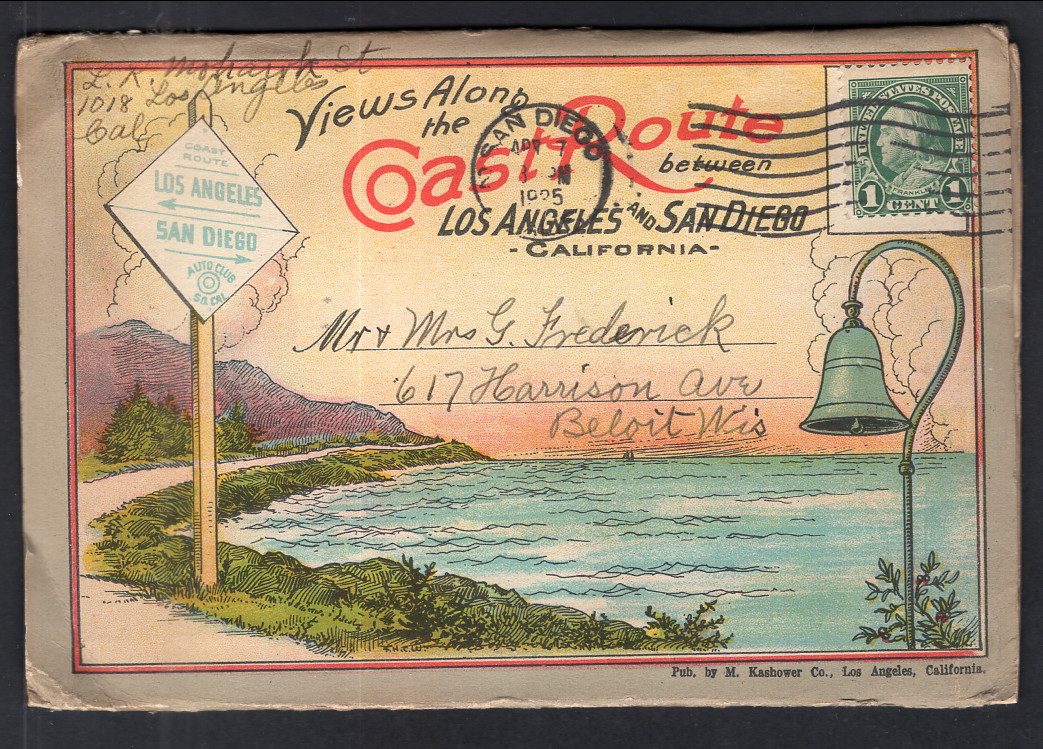 L. K. Mohawk St
1018 Los Angeles
Cal
Views Along
the
Coast Route
between
LOS ANGELES AND SAN DIEGO
- CALIFORNIA -
SAN DIEGO
APR 7
PM
1925
UNITED STATES POSTAGE
FRANKLIN
1 CENT 1
COAST
ROUTE
LOS ANGELES
SAN DIEGO
AUTO CLUB
SO. CAL.
Mr & Mrs G. Frederick
617 Harrison Ave
Beloit Wis
Pub. by M. Kashower Co., Los Angeles, California.